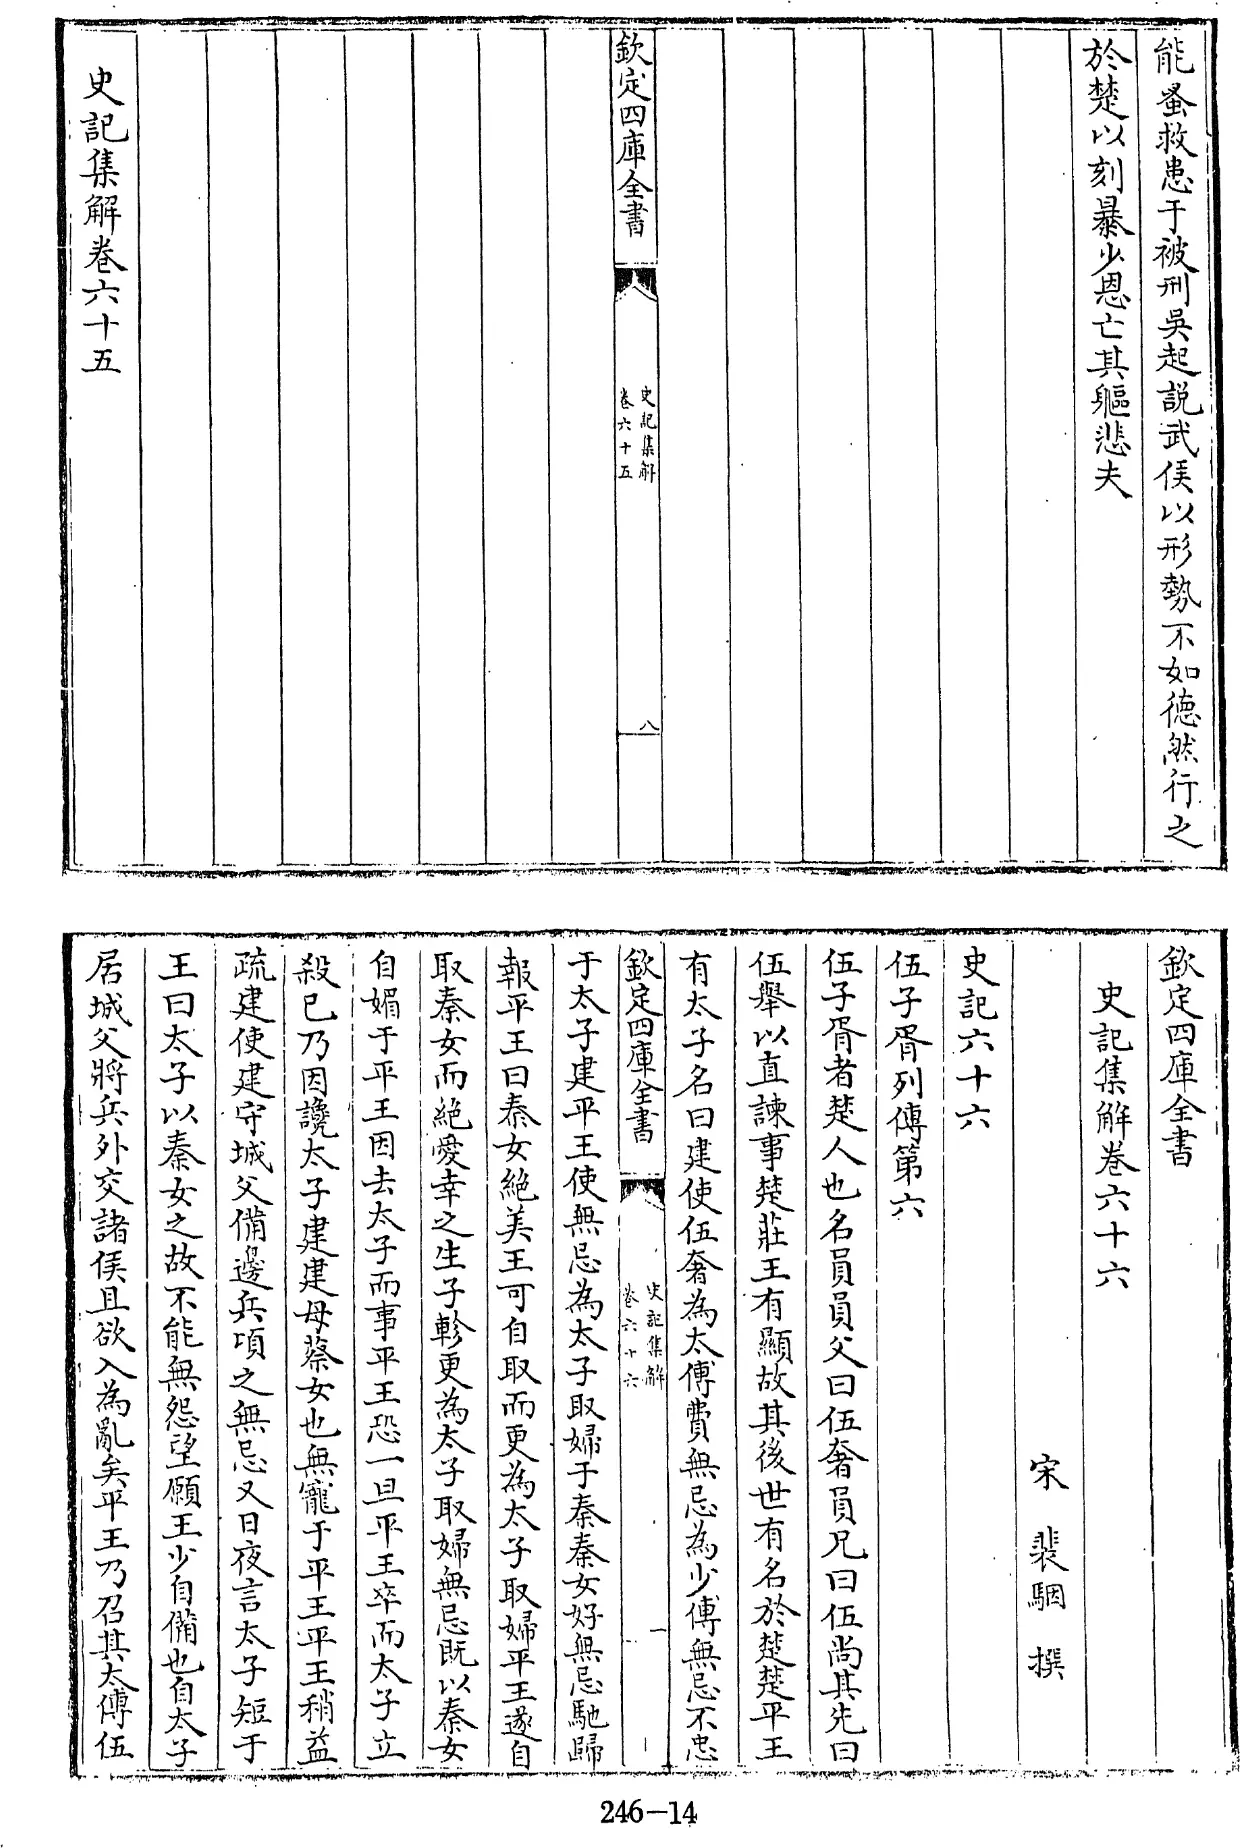 能蚤救患于被刑吳起説武侯以形勢不如德然行之
於楚以刻暴少恩亡其軀悲夫
欽定四庫全書
史記集解
卷六十五
八
史記集解卷六十五
欽定四庫全書
史記集解卷六十六
宋 裴駰 撰
史記六十六
伍子胥列傳第六
伍子胥者楚人也名員員父曰伍奢員兄曰伍尚其先曰
伍舉以直諫事楚莊王有顯故其後世有名於楚楚平王
有太子名曰建使伍奢為太傅費無忌為少傅無忌不忠
欽定四庫全書
史記集解
卷六十六
一
于太子建平王使無忌為太子取婦于秦秦女好無忌馳歸
報平王曰秦女絶美王可自取而更為太子取婦平王遂自
取秦女而絶愛幸之生子軫更為太子取婦無忌既以秦女
自媚于平王因去太子而事平王恐一旦平王卒而太子立
殺已乃因讒太子建建母蔡女也無寵于平王平王稍益
疏建使建守城父備邊兵頃之無忌又日夜言太子短于
王曰太子以秦女之故不能無怨望願王少自備也自太子
居城父將兵外交諸侯且欲入為亂矣平王乃召其太傅伍
246-14